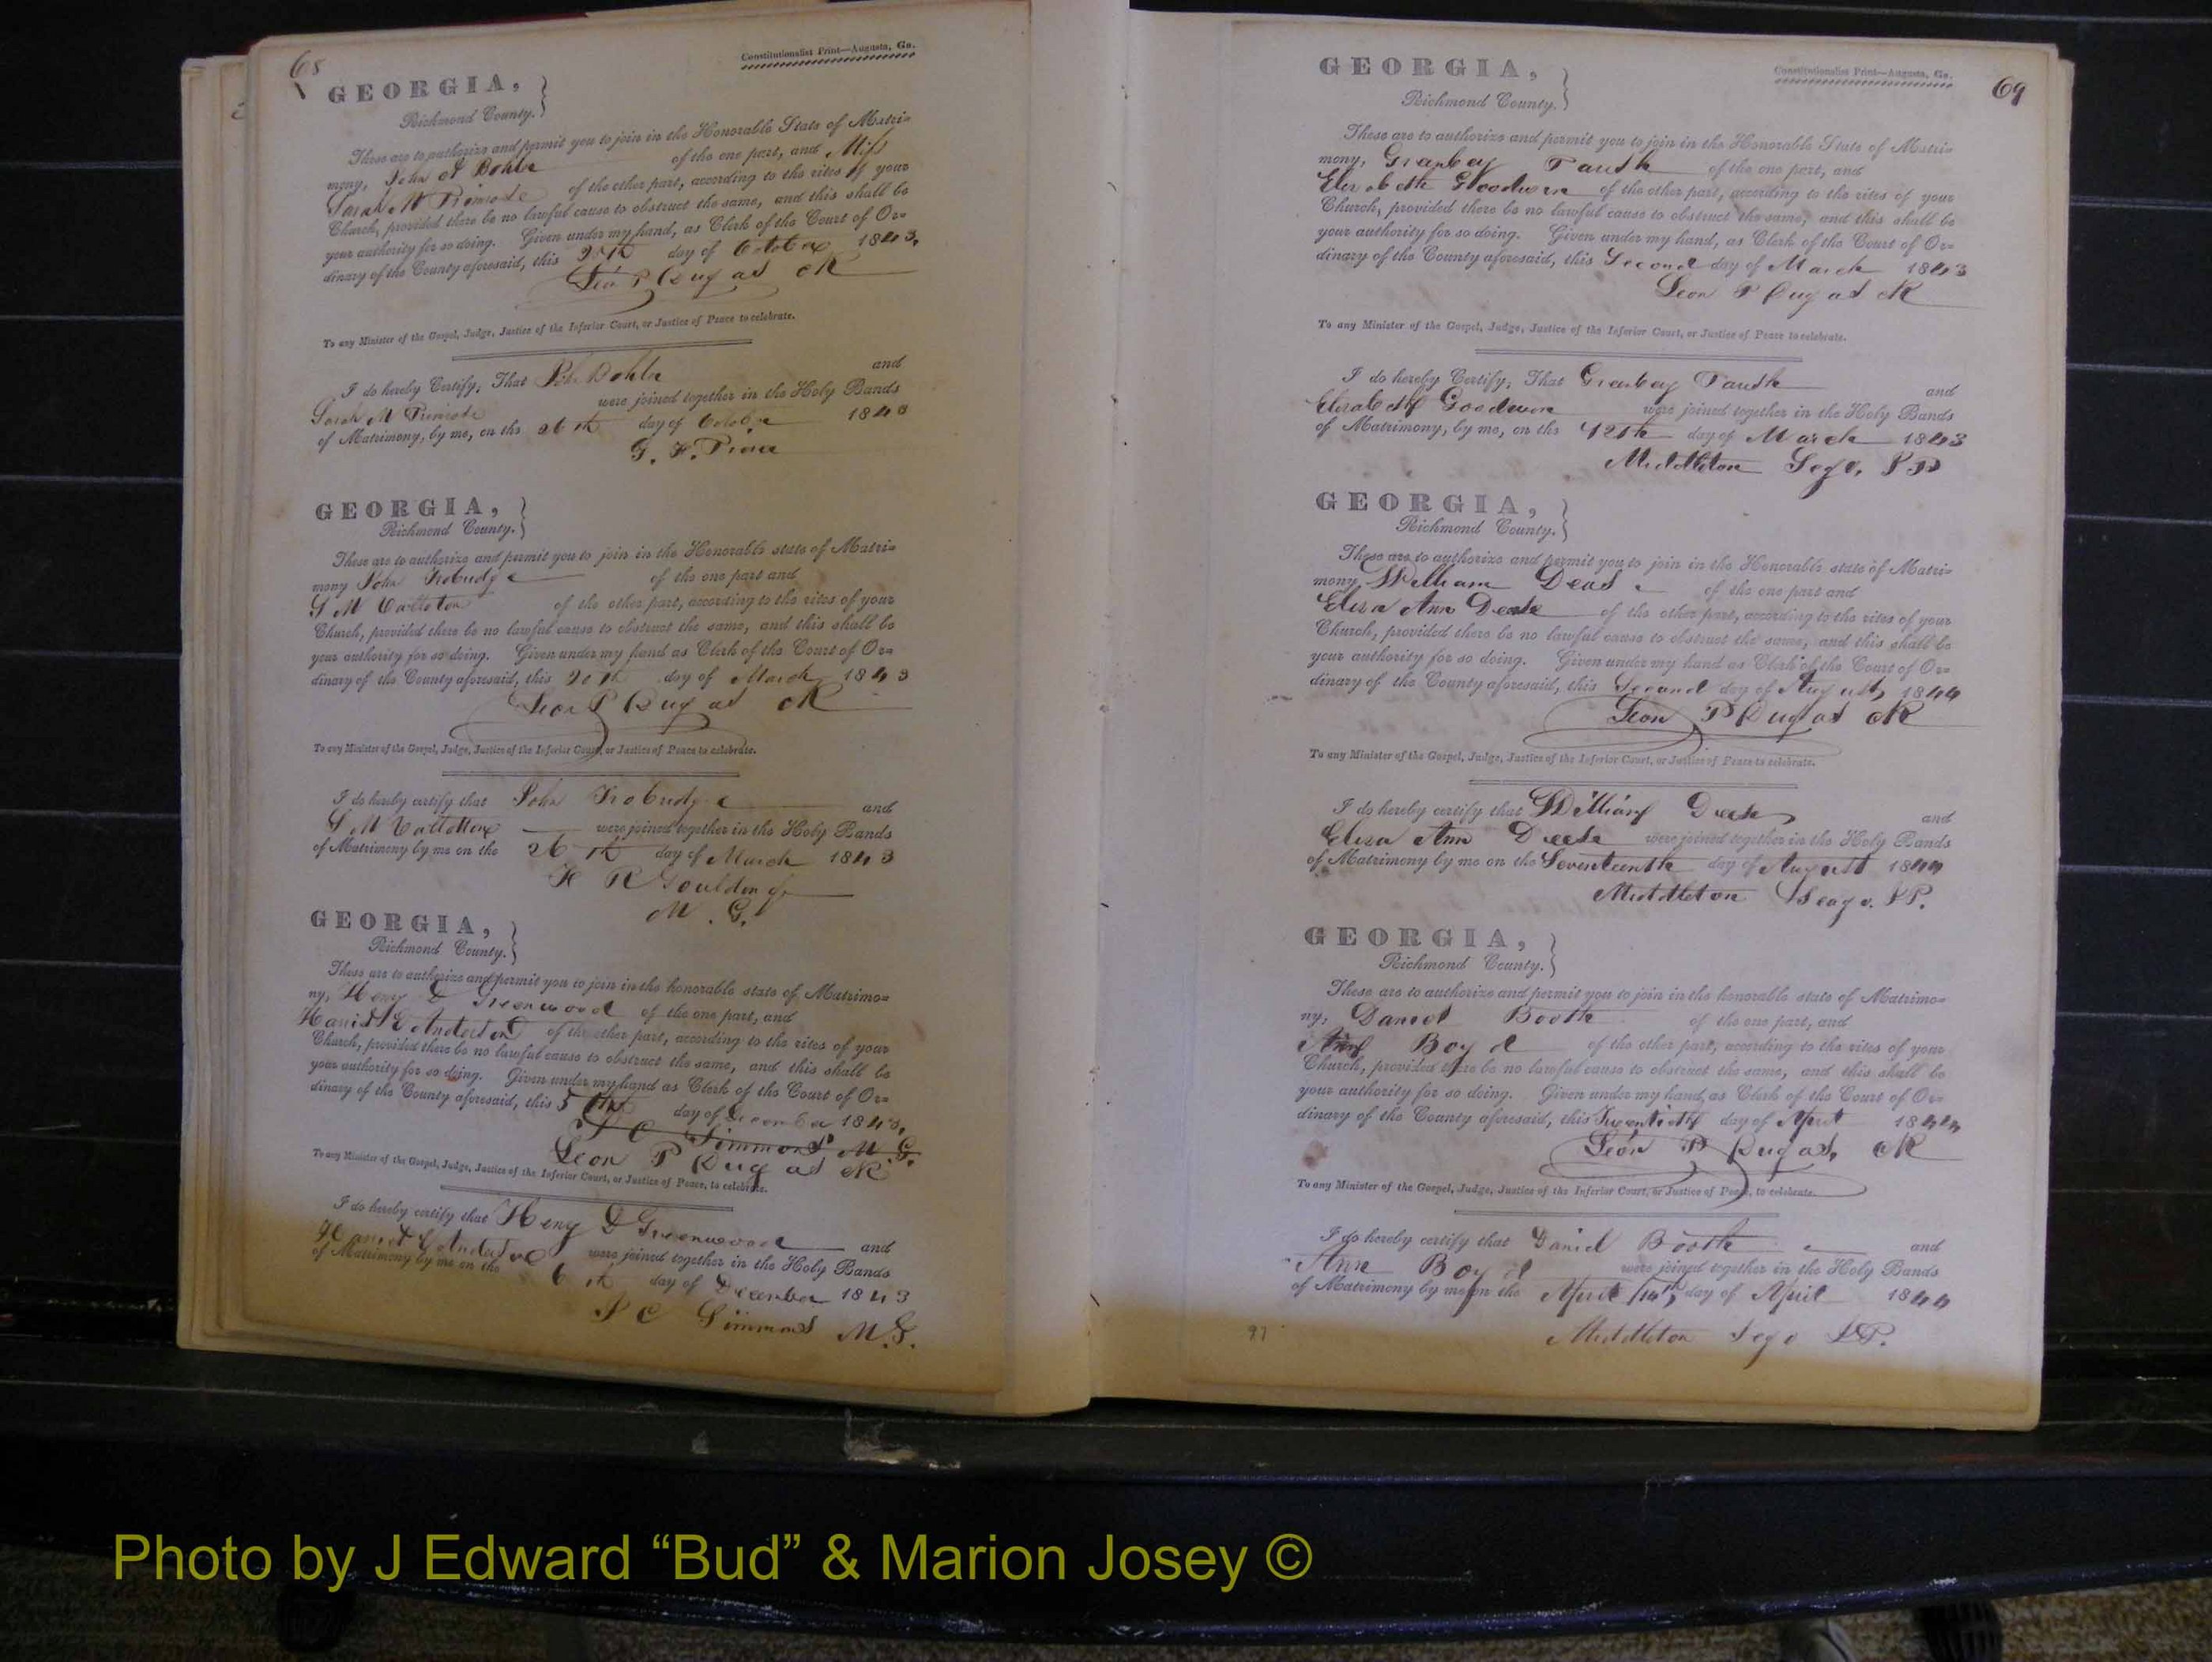 68
Constitutionalist Print—Augusta, Ga.
GEORGIA,
Richmond County.
These are to authorize and permit you to join in the Honorable State of Matri-
mony, John A Bohler of the one part, and Miss
Sarah M Primrose of the other part, according to the rites of your
Church, provided there be no lawful cause to obstruct the same, and this shall be
your authority for so doing. Given under my hand, as Clerk of the Court of Or-
dinary of the County aforesaid, this 25th day of October 1843.
Leon P Dugas
To any Minister of the Gospel, Judge, Justice of the Inferior Court, or Justice of Peace to celebrate.
I do hereby Certify, That John Bohler and
Sarah M Primrose were joined together in the Holy Bands
of Matrimony, by me, on the 26th day of October 1843
G. F. Pierce
GEORGIA,
Richmond County.
These are to authorize and permit you to join in the Honorable state of Matri-
mony John of the one part and
S M of the other part, according to the rites of your
Church, provided there be no lawful cause to obstruct the same, and this shall be
your authority for so doing. Given under my hand as Clerk of the Court of Or-
dinary of the County aforesaid, this 20th day of March 1843
Leon P Dugas
To any Minister of the Gospel, Judge, Justice of the Inferior Court, or Justice of Peace to celebrate.
I do hereby certify that John and
S M were joined together in the Holy Bands
of Matrimony by me on the 26th day of March 1843
R Goulding
M. G.
GEORGIA,
Richmond County.
These are to authorize and permit you to join in the honorable state of Matrimo-
ny, Heny D Greenwood of the one part, and
of the other part, according to the rites of your
Church, provided there be no lawful cause to obstruct the same, and this shall be
your authority for so doing. Given under my hand as Clerk of the Court of Or-
dinary of the County aforesaid, this 5th day of December 1843.
C Simmons M. G.
Leon P Dugas
To any Minister of the Gospel, Judge, Justice of the Inferior Court, or Justice of Peace, to celebrate.
I do hereby certify that Heny D Greenwood and
were joined together in the Holy Bands
of Matrimony by me on the 6th day of December 1843
C Simmons M.G.
Constitutionalist Print—Augusta, Ga.
69
GEORGIA,
Richmond County.
These are to authorize and permit you to join in the Honorable State of Matri-
mony, of the one part, and
Elizabeth Goodwin of the other part, according to the rites of your
Church, provided there be no lawful cause to obstruct the same, and this shall be
your authority for so doing. Given under my hand, as Clerk of the Court of Or-
dinary of the County aforesaid, this Second day of March 1843
Leon P Dugas
To any Minister of the Gospel, Judge, Justice of the Inferior Court, or Justice of Peace to celebrate.
I do hereby Certify, That and
Elizabeth Goodwin were joined together in the Holy Bands
of Matrimony, by me, on the 12th day of March 1843
Middleton Sego. JP
GEORGIA,
Richmond County.
These are to authorize and permit you to join in the Honorable state of Matri-
mony William Deas of the one part and
Eliza Ann of the other part, according to the rites of your
Church, provided there be no lawful cause to obstruct the same, and this shall be
your authority for so doing. Given under my hand as Clerk of the Court of Or-
dinary of the County aforesaid, this Second day of August, 1844
Leon P Dugas
To any Minister of the Gospel, Judge, Justice of the Inferior Court, or Justice of Peace to celebrate.
I do hereby certify that William and
Eliza Ann were joined together in the Holy Bands
of Matrimony by me on the Seventeenth day of August 1844
Middleton Seago. JP.
GEORGIA,
Richmond County.
These are to authorize and permit you to join in the honorable state of Matrimo-
ny, Daniel Booth of the one part, and
Ann Boyd of the other part, according to the rites of your
Church, provided there be no lawful cause to obstruct the same, and this shall be
your authority for so doing. Given under my hand, as Clerk of the Court of Or-
dinary of the County aforesaid, this day of April 1844
Leon P Dugas,
To any Minister of the Gospel, Judge, Justice of the Inferior Court, or Justice of Peace, to celebrate.
I do hereby certify that Daniel Booth and
Ann Boyd were joined together in the Holy Bands
of Matrimony by me on the April 14th, day of April 1844
Middleton Sego JP.
97
Photo by J Edward “Bud” & Marion Josey ©